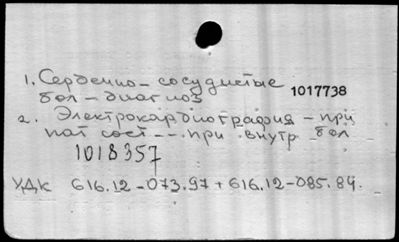 1. Сердечно-сосудистые 1017738
бол-диагноз
2. Электрокардиография - при
пат сост -- при внутр бол
1018357
УДК 616.12-073.97+616.12-085.84.